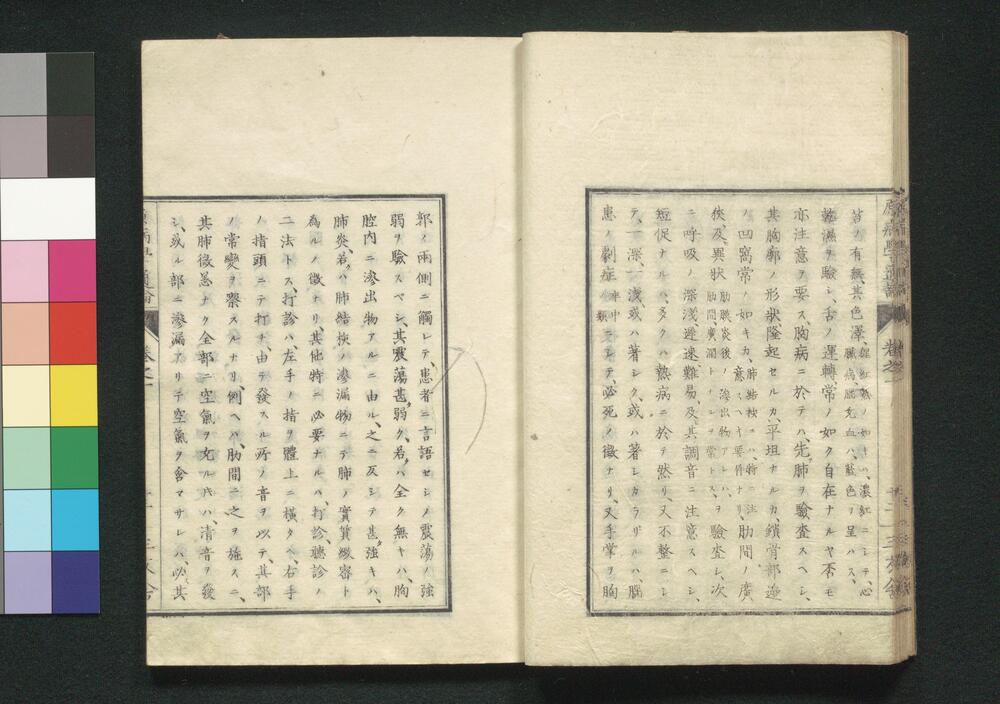 苔ノ有無其色澤、
ノ如キハ、濃紅ニシテ、心
臓病肺充血ハ、藍色ヲ呈ハス、
乾濕ヲ驗シ、舌ノ運轉、常ノ如ク自在ナルヤ否モ
亦注意ヲ要ス、胸病ニ於テハ、先肺ヲ驗査スヘシ、
其胸廓ノ形狀隆起セルカ、平坦ナルカ、鎖骨部邊
ノ凹窩常ノ如キカ、
肺結核ニハ、特ニ注
意スヘキ要件ナリ
肋間ノ廣
狹及異狀
肋膜炎後ノ滲出物アレハ、
肋間廣濶トナルヲ常トス、
ヲ驗査シ、次
ニ呼吸ノ深淺遲速難易及其調音ニ注意スヘシ、
短促ナルハ、多クハ熱病ニ於テ然リ、又不整ニシ
テ、一深、一淺或ハ著シク、或ハ著シカラザルハ、腦
患ノ劇症
卒中
ニシテ、必死ノ徴ナリ、又手掌ヲ胸
郭ノ兩側ニ觸レテ、患者ニ言語セシメ震蕩ノ強
弱ヲ驗スベシ、其震蕩甚弱ク、若クハ全ク無キハ、胸
腔内ニ滲出物アルニ由ル、之ニ反シテ甚強キハ、
肺炎、若クハ肺結核ノ滲漏物ニテ肺ノ實質緻密ト
為ルノ徴ナリ、其他特ニ必要ナルハ、打診、聽診ノ
二法トス、打診ハ、左手ノ指ヲ體上ニ横タヘ、右手
ノ指頭ニテ打チ、由テ發スル所ノ音ヲ以テ、其部
ノ常變ヲ察スルナリ、例ヘハ、肋間ニ之ヲ施スニ、
其肺微恙ナク全部ニ空氣ヲ充ル片ハ、清音ヲ發
シ、或ル部ニ滲漏アリテ空氣ヲ含マサレハ、必其